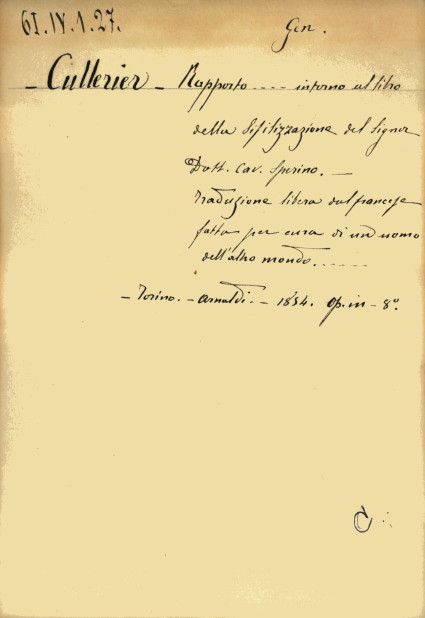 61.IV.1.27.
Gen.
- Cullerier - Rapporto .... intorno al libro
della Sifilizzazione del Signor
Dott. Cav. Sperino. -
Traduzione libera dal francese
fatta per cura di un uomo
dell'altro mondo......
- Torino. - Arnaldi - 1854. Op. in - 8°.
C